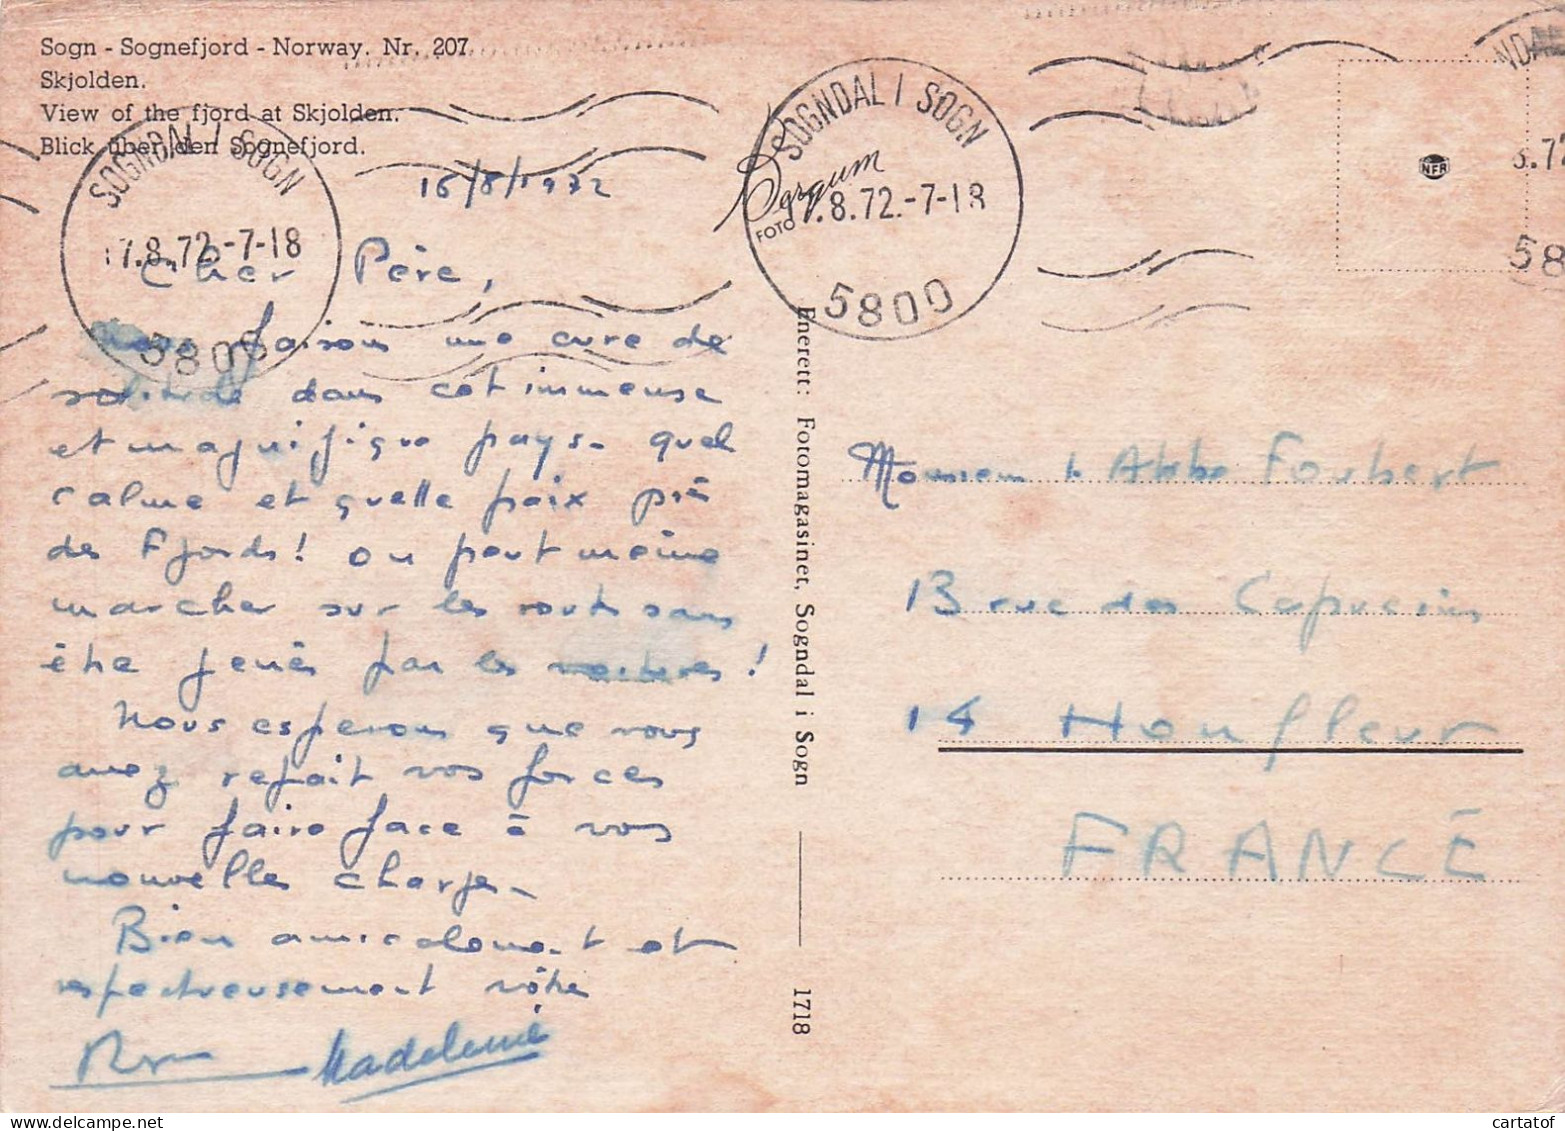 Sogn - Sognefjord - Norway. Nr. 207
Skjolden.
View of the fjord at Skjolden.
Blick über den Sognefjord.
SOGNDAL I SOGN
17.8.72.-7-18
5800
SOGNDAL I SOGN
17.8.72.-7-18
5800
NDAL
8.72
58
NFR
Bergum
FOTO
16/8/1972
Cher Père,
Nous faisons une cure de
solitude dans cet immense
et magnifique pays - quel
calme et quelle paix près
des Fjords ! On peut même
marcher sur les routes sans
être gênés par les voitures !
Nous esperons que vous
avez refait vos forces
pour faire face à vos
nouvelles charges -
Bien amicalement et
respectueusement vôtre
Madeleine
Enerett: Fotomagasinet, Sogndal i Sogn
1718
Monsieur le Abbe Foubert
13 rue des Capucins
14 Honfleur
FRANCE
cartatof